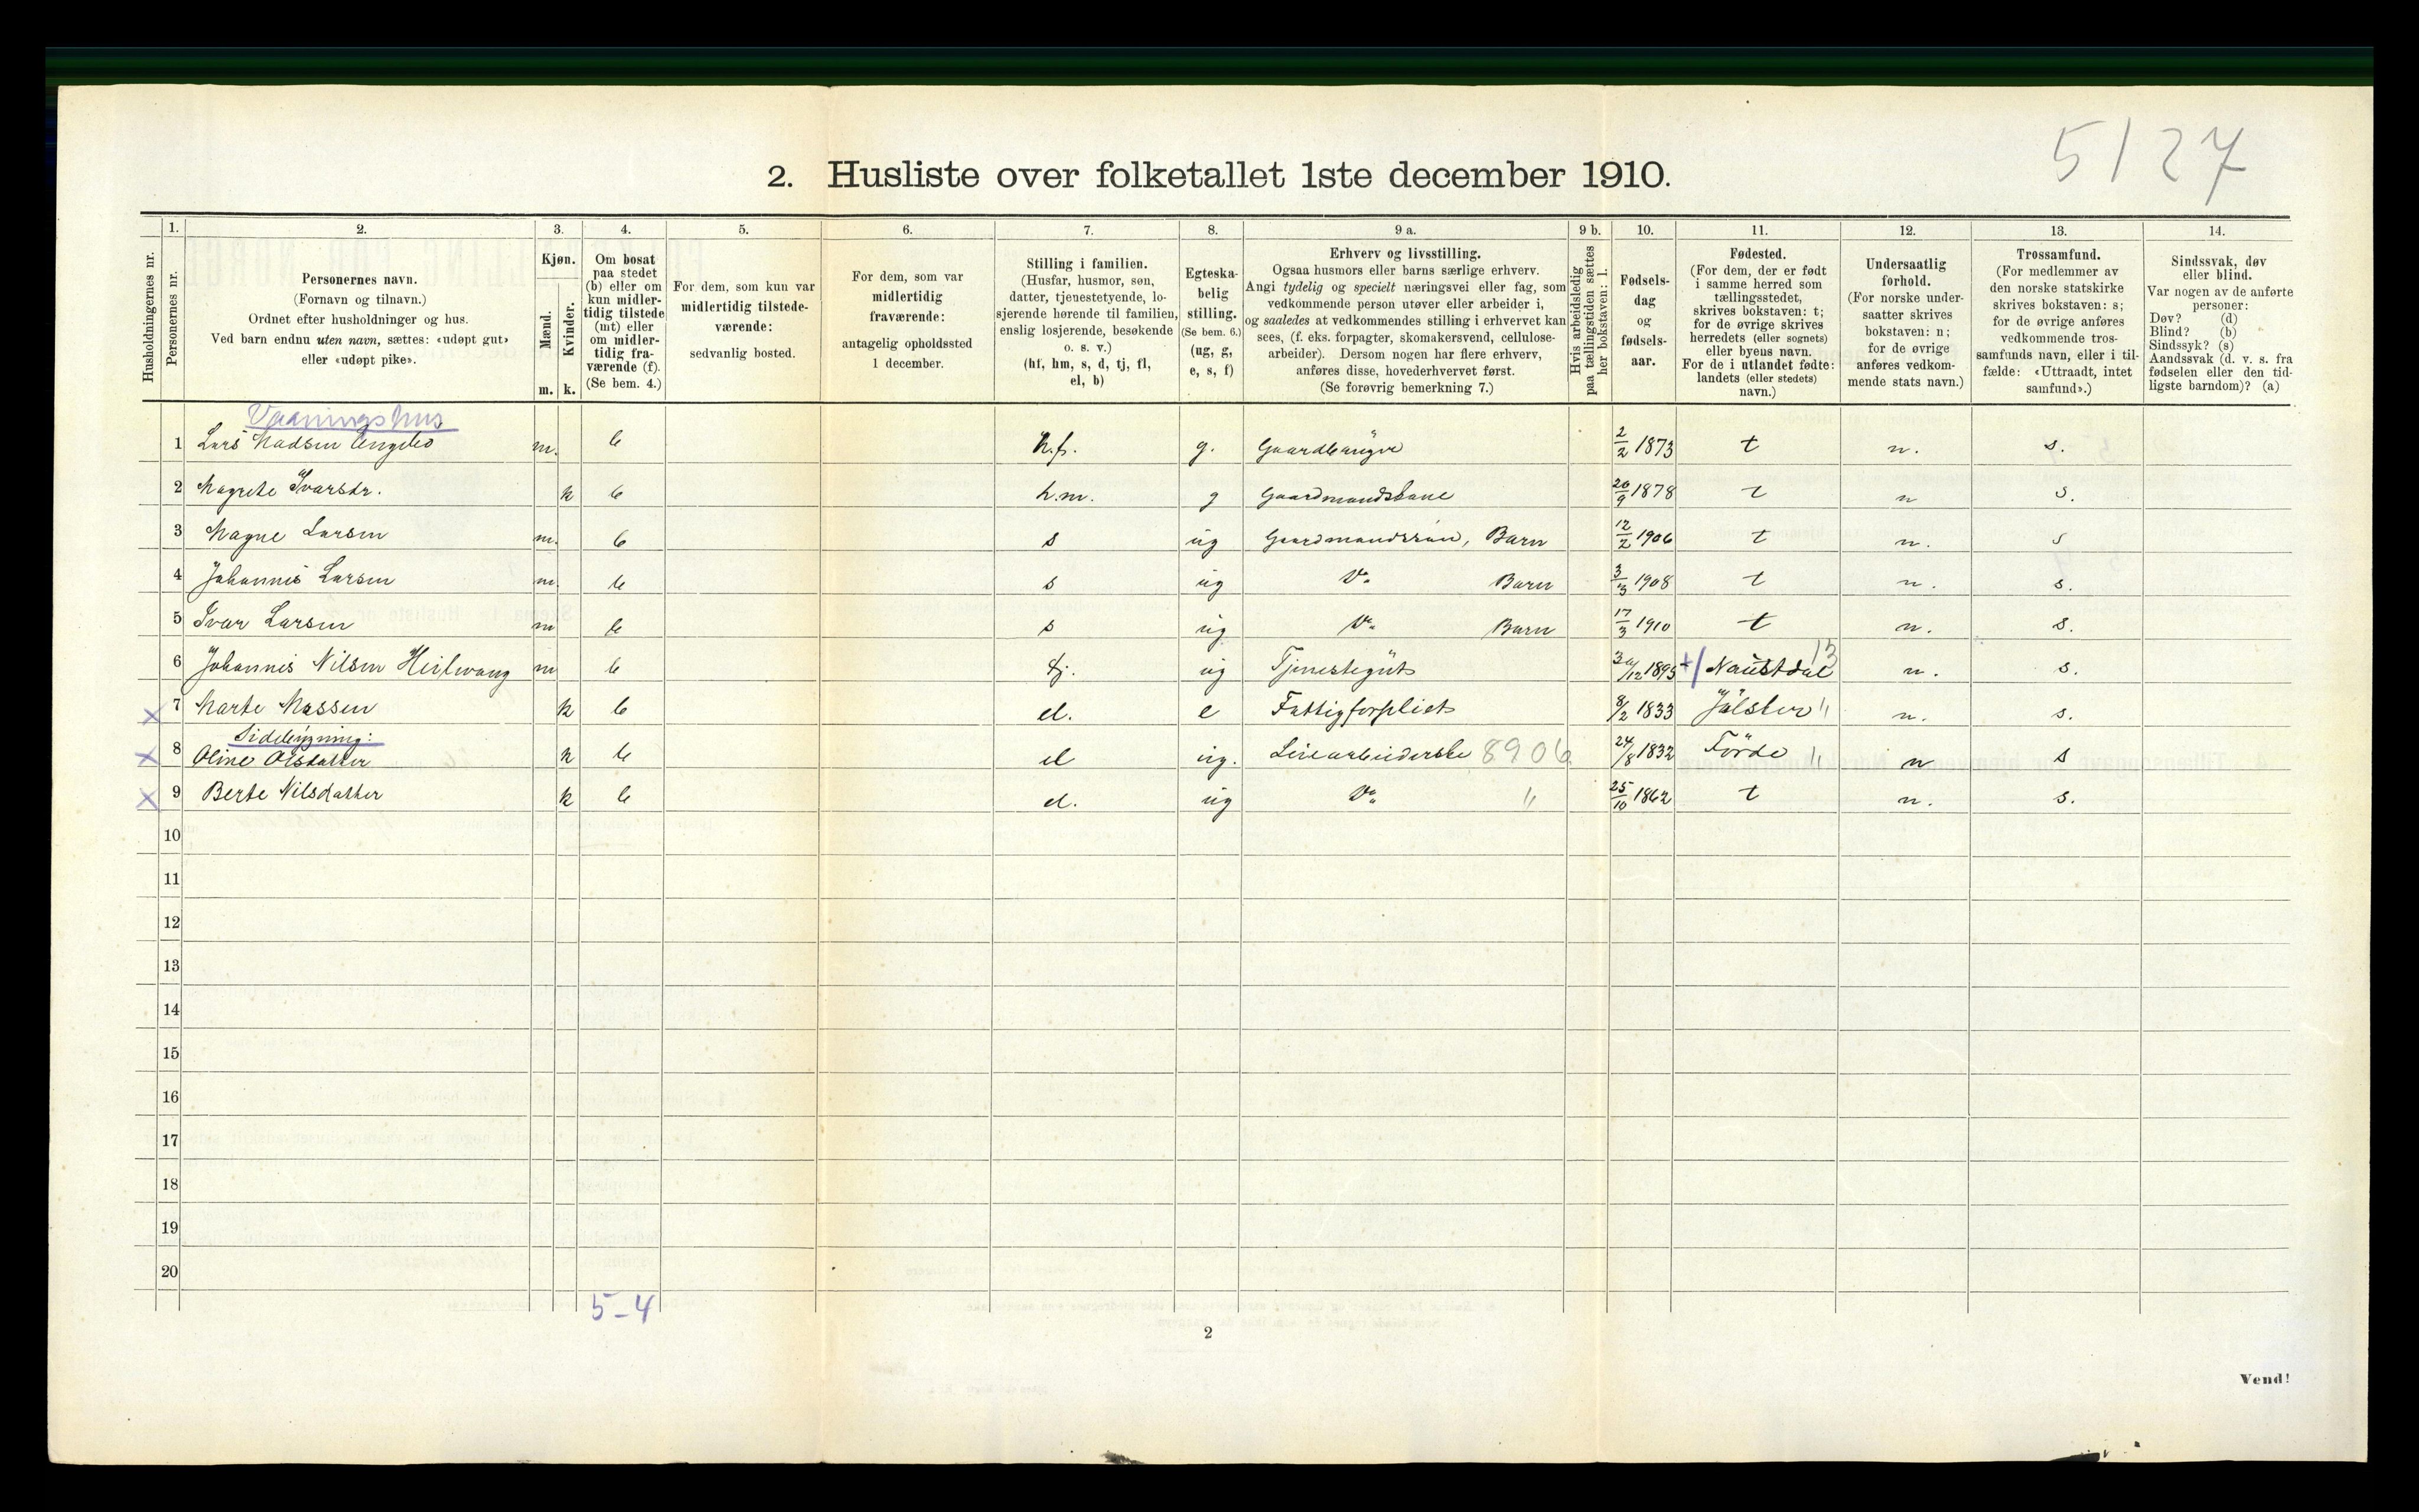 5127
2. Husliste over folketallet 1ste december 1910.
Husholdningernes nr.
1. Personernes nr.
2. Personernes navn.
(Fornavn og tilnavn.)
Ordnet efter husholdninger og hus.
Ved barn endnu uten navn, sættes: «udøpt gut»
eller «udøpt pike».
3. Kjøn.
Mænd. m.
Kvinder. k.
4. Om bosat
paa stedet
(b) eller om
kun midler-
tidig tilstede
(mt) eller
om midler-
tidig fra-
værende (f).
(Se bem. 4.)
5. For dem, som kun var
midlertidig tilstede-
værende:
sedvanlig bosted.
6. For dem, som var
midlertidig
fraværende:
antagelig opholdssted
1 december.
7. Stilling i familien.
(Husfar, husmor, søn,
datter, tjenestetyende, lo-
sjerende hørende til familien,
enslig losjerende, besøkende
o. s. v.)
(hf, hm, s, d, tj, fl,
el, b)
8. Egteska-
belig
stilling.
(Se bem. 6.)
(ug, g,
e, s, f)
9 a. Erhverv og livsstilling.
Ogsaa husmors eller barns særlige erhverv.
Angi tydelig og specielt næringsvei eller fag, som
vedkommende person utøver eller arbeider i,
og saaledes at vedkommendes stilling i erhvervet kan
sees, (f. eks. forpagter, skomakersvend, cellulose-
arbeider). Dersom nogen har flere erhverv,
anføres disse, hovederhvervet først.
(Se forøvrig bemerkning 7.)
9 b. Hvis arbeidsledig
paa tællingstiden sættes
her bokstaven: l.
10. Fødsels-
dag
og
fødsels-
aar.
11. Fødested.
(For dem, der er født
i samme herred som
tællingsstedet,
skrives bokstaven: t;
for de øvrige skrives
herredets (eller sognets)
eller byens navn.
For de i utlandet fødte:
landets (eller stedets)
navn.)
12. Undersaatlig
forhold.
(For norske under-
saatter skrives
bokstaven: n;
for de øvrige
anføres vedkom-
mende stats navn.)
13. Trossamfund.
(For medlemmer av
den norske statskirke
skrives bokstaven: s;
for de øvrige anføres
vedkommende tros-
samfunds navn, eller i til-
fælde: «Uttraadt, intet
samfund».)
14. Sindssvak, døv
eller blind.
Var nogen av de anførte
personer:
Døv? (d)
Blind? (b)
Sindssyk? (s)
Aandssvak (d. v. s. fra
fødselen eller den tid-
ligste barndom)? (a)
Vaaningshus
1 Lars Madsen Engebø m. b h.f. g. Gaardbruger 2/2 1873 t n. s.
2 Magrete Ivarsdr. k b h.m. g Gaardmandskone 20/9 1878 t n s.
3 Magne Larsen m. b s ug Gaardmandssøn, Barn 12/2 1906 t n. s
4 Johannes Larsen m. b s ug Do Barn 3/3 1908 t n. s.
5 Ivar Larsen m b s ug Do Barn 17/3 1910 t n. s.
6 Johannes Nilsen m b tj. ug Tjenestegut 30/12 1895 Naustdal 13 n. s.
x 7 Marte k b el. e Fattigforpleiet 8/2 1833 Jølster " n. s.
Sidebygning:
x 8 Oline Olsdatter k b el ug. 8906 24/8 1832 Førde " n s
x 9 Berte Nilsdatter k b el. ug Do " 25/10 1862 t n. s.
10
11
12
13
14
15
16
17
18
19
20
5-4
2
Vend!